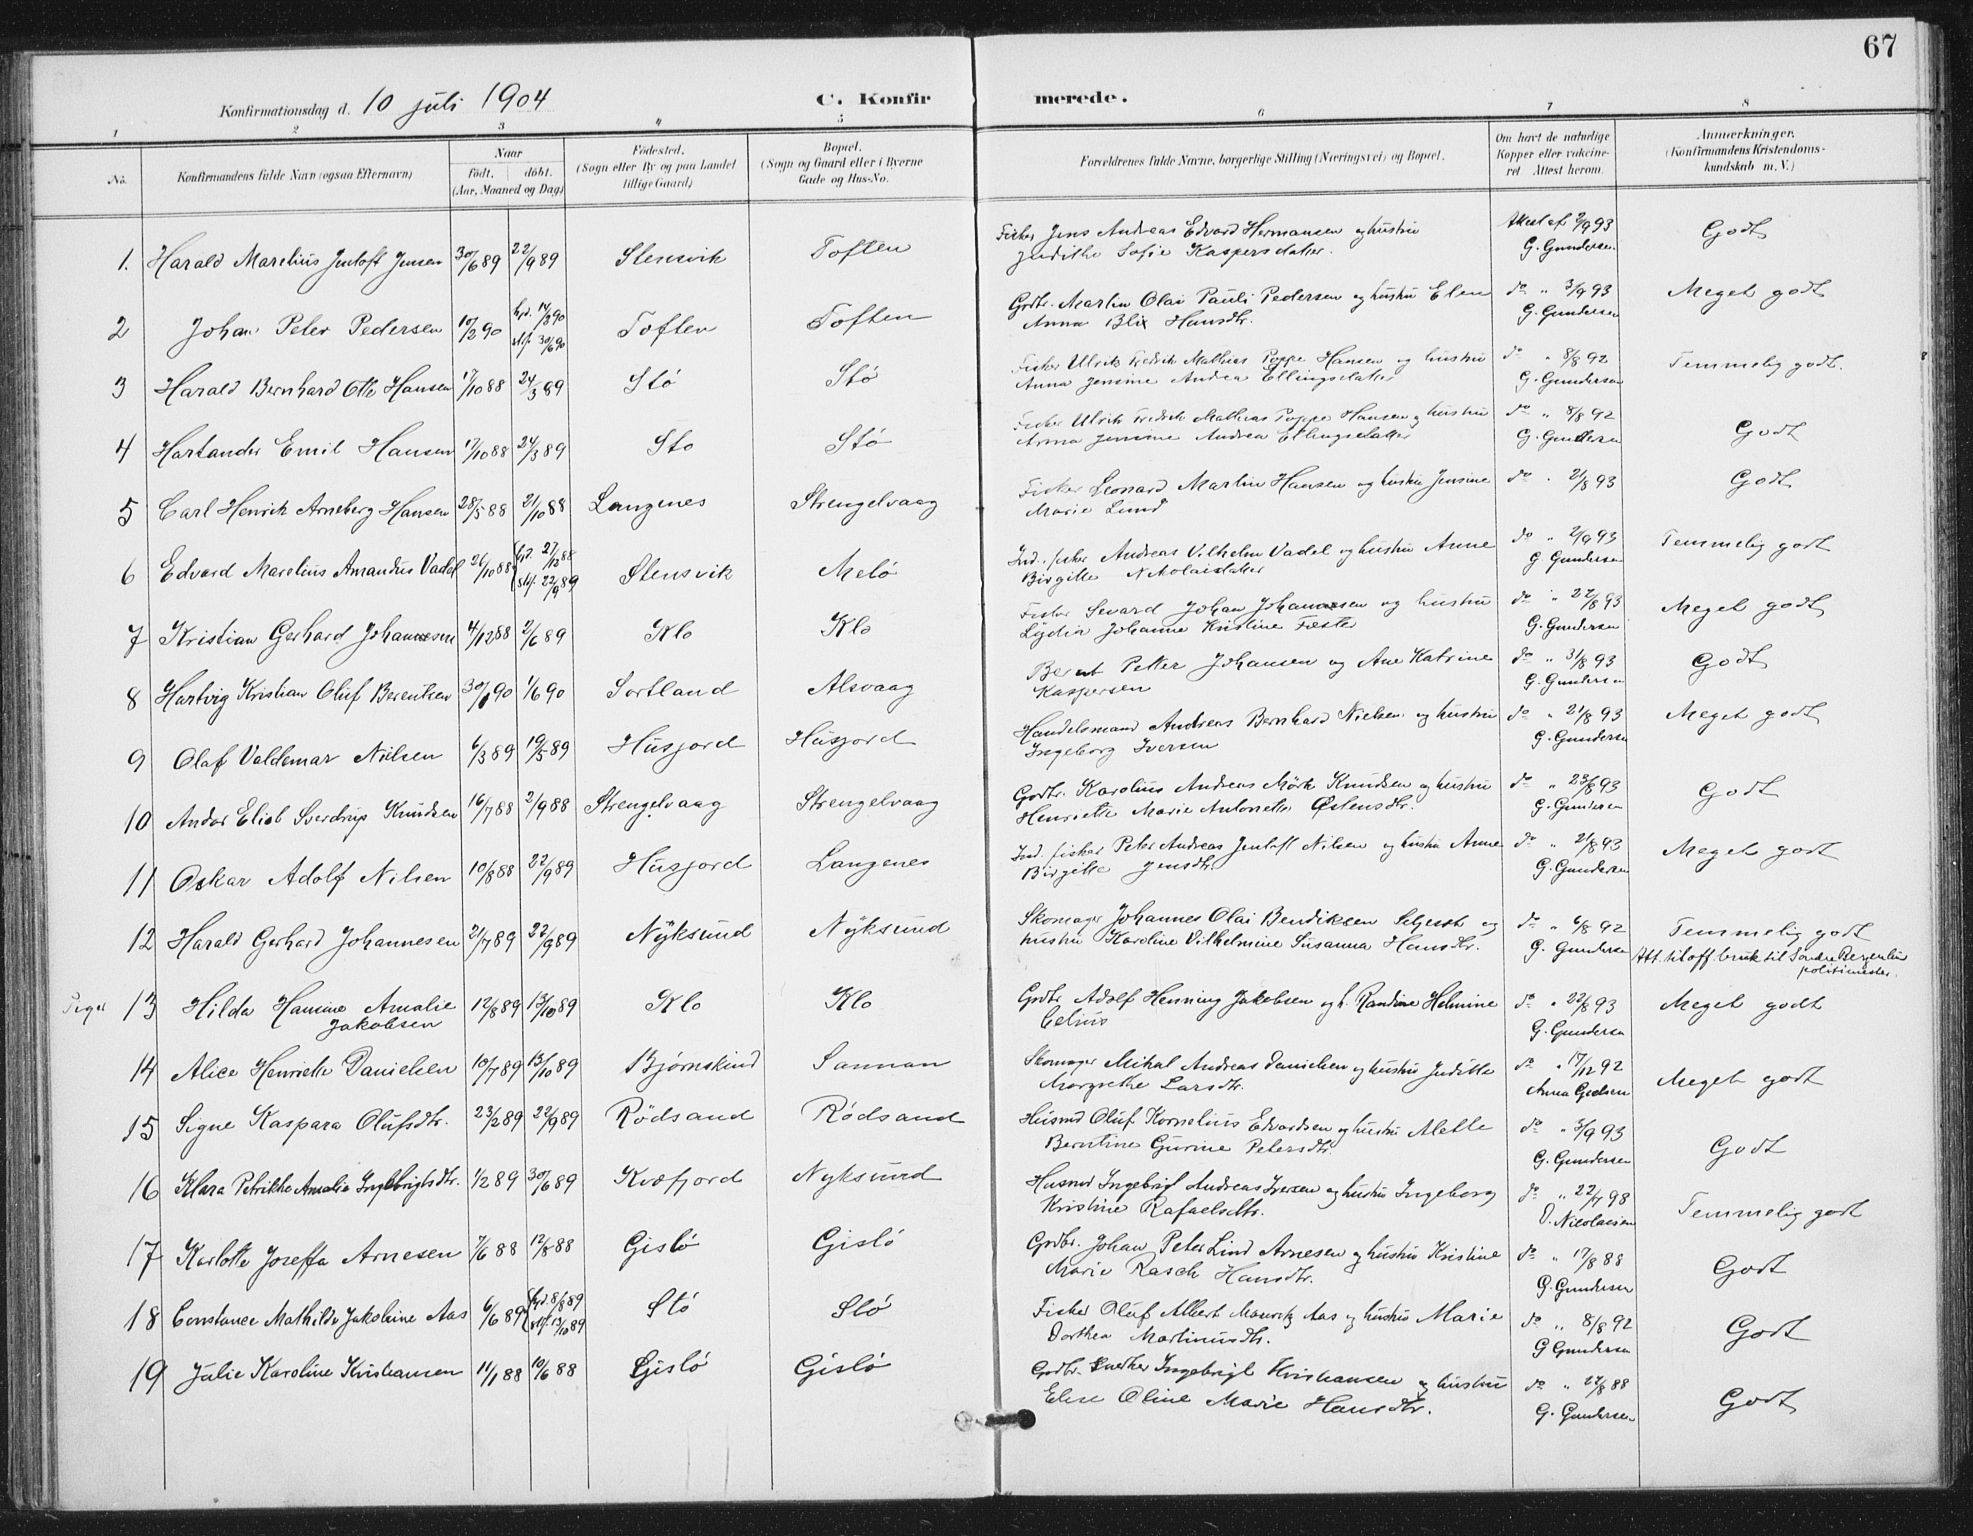 67
Konfirmationsdag d. 10 juli 1904
C. Konfirmerede.
1 2 3 4 5 6 7 8
No.
Konfirmandens fulde Navn (ogsaa Efternavn)
Naar
födt. döbt.
(Aar, Maaned og Dag)
Födested.
(Sogn eller By og paa Landet
tillige Gaard)
Bopæl.
(Sogn og Gaard eller i Byerne
Gade og Hus-No.
Forældrenes fulde Navne, borgerlige Stilling (Næringsvei) og Bopæl.
Om havt de naturlige
Kopper eller vakcine-
ret. Attest herom.
Anmærkninger.
(Konfirmandens Kristendoms-
kundskab m. V.)
1. Harald Marelius Jentoft Jensen 30/6 89 22/9 89 Stensvik Toften Fisker Jens Andreas Edvard Hermansen og hustru Attest af 2/9 93 Godt
Judithe Sofie Kaspersdatter. G. Gundersen
2 Johan Peter Pedersen 10/2 90 hjd. 14/3 90 Toften Toften Gdbr. Martin Olai Pauli Pedersen og hustru Elen do " 3/9 93 Meget godt
stf. 30/6 90 Anna Blix Hansdtr. G. Gundersen
3 Harald Bernhard Otto Hansen 17/10 88 24/3 89 Stö Stö Fisker Ulrik Fredrik Mathias Poppe Hansen og hustru do " 8/8 92 Temmelig godt.
Anna Jensine Andrea Ellingsdatter G. Gundersen
4 Hartander Emil Hansen 17/10 88 24/3 89 Sto Stö Fisker Ulrik Fredrik Mathias Poppe Hansen og hustru do " 8/8 92 Godt
Anna Jensine Andrea Ellingsdatter G. Gundersen
5 Carl Henrik Arneberg Hansen 28/5 88 21/10 88 Langenes Strengelvaag Fisker Leonard Martin Hansen og hustru Jensine do " 21/8 93 Godt
Marie Lund
6 Edvard Marelius Amandus Vadel 26/10 88 hjd. 27/12 88 Stensvik Melö Ind. fisker Andreas Vilhelm Vadel og hustru Anne do " 2/9 93 Temmelig godt
stf. 22/9 89 Birgitte Nikolaisdatter G Gundersen
7 Kristian Gerhard Johannesen 4/12 88 2/6 89 Klo Klo Fisker Sevard Johan Johannesen og hustru do " 22/8 93 Meget godt
Lydia Johanne Kristine Fæster G. Gundersen
8 Hartvig Kristian Oluf Berentsen 30/1 90 1/6 90 Sortland Alsvaag Bernt Petter Johansen og Ane Katrine do " 31/8 93 Godt
Kaspersen G. Gundersen
9 Olaf Valdemar Nilsen 6/3 89 19/5 89 Husjord Husjord Handelsmand Andreas Bernhard Nielsen og hustru do " 21/8 93 Meget godt
Ingeborg Iversen G. Gundersen
10 Andor Elieb Sverdrup Knudsen 16/7 88 2/9 88 Strengelvaag Strengelvaag Gdbr. Karolius Andreas Mörk Knudsen og hustru do " 23/8 93 Godt
Henriette Marie Antonette Østensdtr. G. Gundersen
11 Oskar Adolf Nilsen 10/8 88 22/9 89 Husjord Langenes Ind. fisker Peter Andreas Jentoft Nilsen og hustru Anne do " 21/8 93 Meget godt
Birgitte Jensdtr. G. Gundersen
12 Harald Gerhard Johannesen 21/7 89 22/9 89 Nyksund Nyksund Skomager Johannes Olai Bendiksen Seljeset og do " 6/8 92 Temmelig godt
hustru Karoline Vilhelmine Susanna Hansdtr. G. Gundersen Att. til off. bruk til Söndre Bergenhus
politimester.
Piger 13 Hilda Hansine Amalie 12/8 89 13/10 89 Klo Klo Gdbr. Adolf Henning Jakobsen og h. Randine Helmine do " 22/8 93 Meget godt
Jakobsen Celius G. Gundersen
14 Alice Henriette Danielsen 10/7 89 13/10 89 Bjørnskind Sannan Skomager Mikal Andreas Danielsen og hustru Judithe do " 17/12 92 Meget godt
Margrethe Larsdtr. Anna
15 Signe Kaspara Olufsdtr. 23/2 89 22/9 89 Rödsand Rödsand Husmd Oluf Kornelius Edvardsen og hustru Alette do " 3/9 93 Godt
Berntine Gurine Petersdtr. G. Gundersen
16 Klara Petrikke Amalie Ingebrigtsdtr. 1/2 89 30/6 89 Kvæfjord Nyksund Husmd Ingebrigt Andreas Iversen og hustru Ingeborg do " 22/7 98 Temmelig godt
Kristine Rafaelsdtr. O. Nicolaisen
17 Karlotte Joseffa Arnesen 7/6 88 12/8 88 Gislö Gislö Gdbr. Johan Peter Lind Arnesen og hustru Kristine do " 17/8 88 Godt
Marie Rasch Hansdtr. G. Gundersen
18 Constance Mathilde Jakobine Aas 6/6 89 hjd. 8/8 89 Stö Stö Fisker Oluf Albert Mauritz Aas og hustru Marie do " 8/8 92 Godt
stf. 13/10 89 Dorthea Martinusdtr. G Gundersen
19 Julie Karoline Kristiansen 11/1 88 10/6 88 Gislö Gislö Gdbr. Ingebrigt Kristiansen og hustru do " 27/8 88 Godt
Elise Oline Marie Hansdtr. G. Gundersen